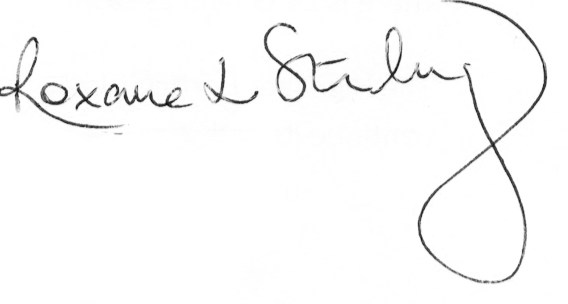 Roxane L Sterling